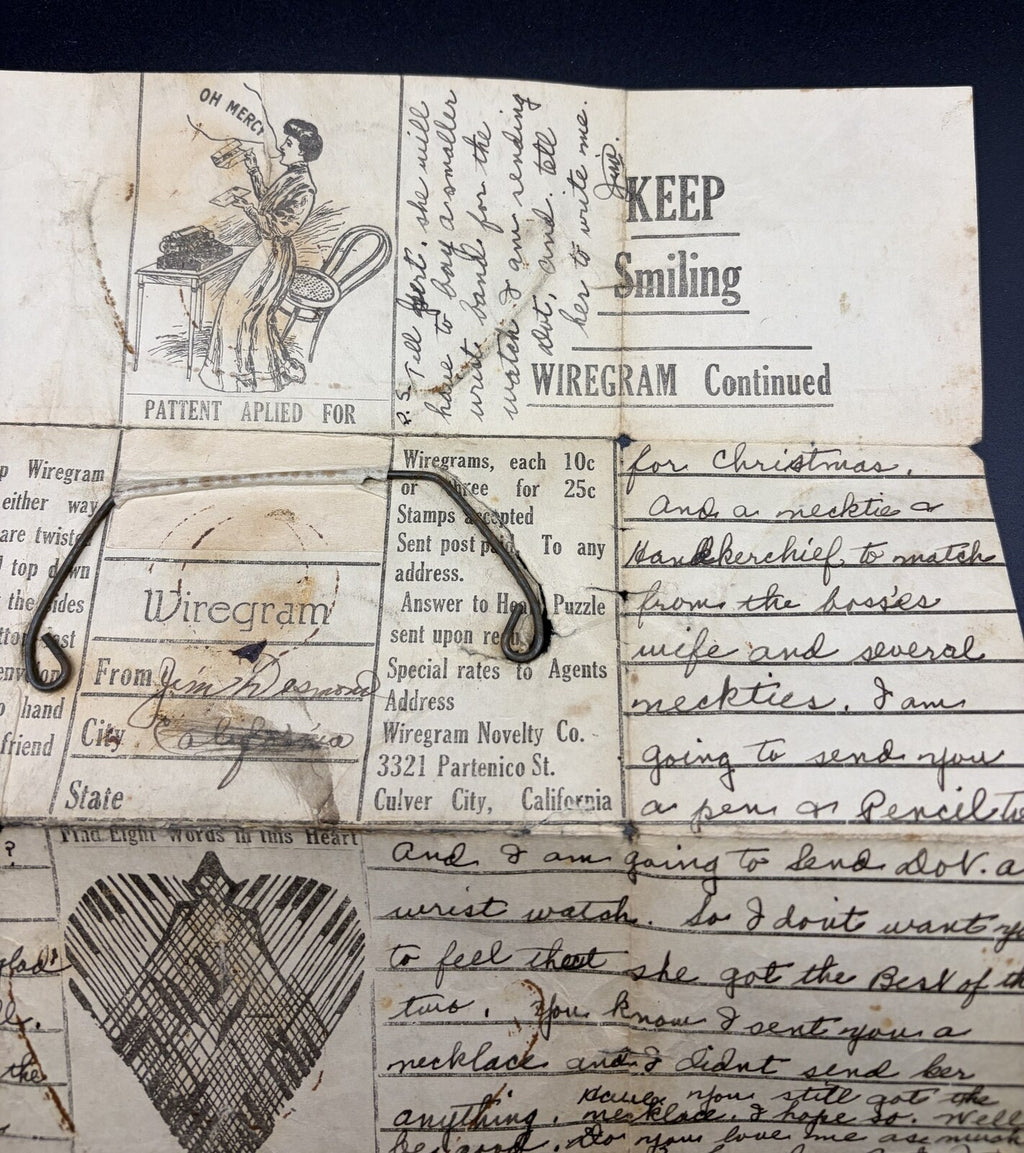 OH MERCY
P.S. Tell Dot. she will
have to buy a smaller
wrist band for the
watch I am sending
Dot, and tell
her to write me.
Jim.
KEEP
Smiling
WIREGRAM Continued
PATTENT APLIED FOR
p Wiregram
either way
are twiste
top down
the sides
ttom last
env
hand
friend
Wiregram
From Jim Desmond
City California
State
Wiregrams, each 10c
or three for 25c
Stamps accepted
Sent post paid. To any
address.
Answer to Heart Puzzle
sent upon
Special rates to Agents
Address
Wiregram Novelty Co.
3321 Partenico St.
Culver City, California
for Christmas.
And a necktie &
Handkerchief to match
from the bosses
wife and several
neckties. I am
going to send you
a pen & Pencil
Find Eight Words in this Heart
?
glad
the
And I am going to Send Dot. a
wrist watch. So I dont want
to feel that she got the Best of
two. You know I sent you a
necklace and I didnt send her
anything. Have you still got the
necklace. I hope so. Well
be good. Do you love me as much